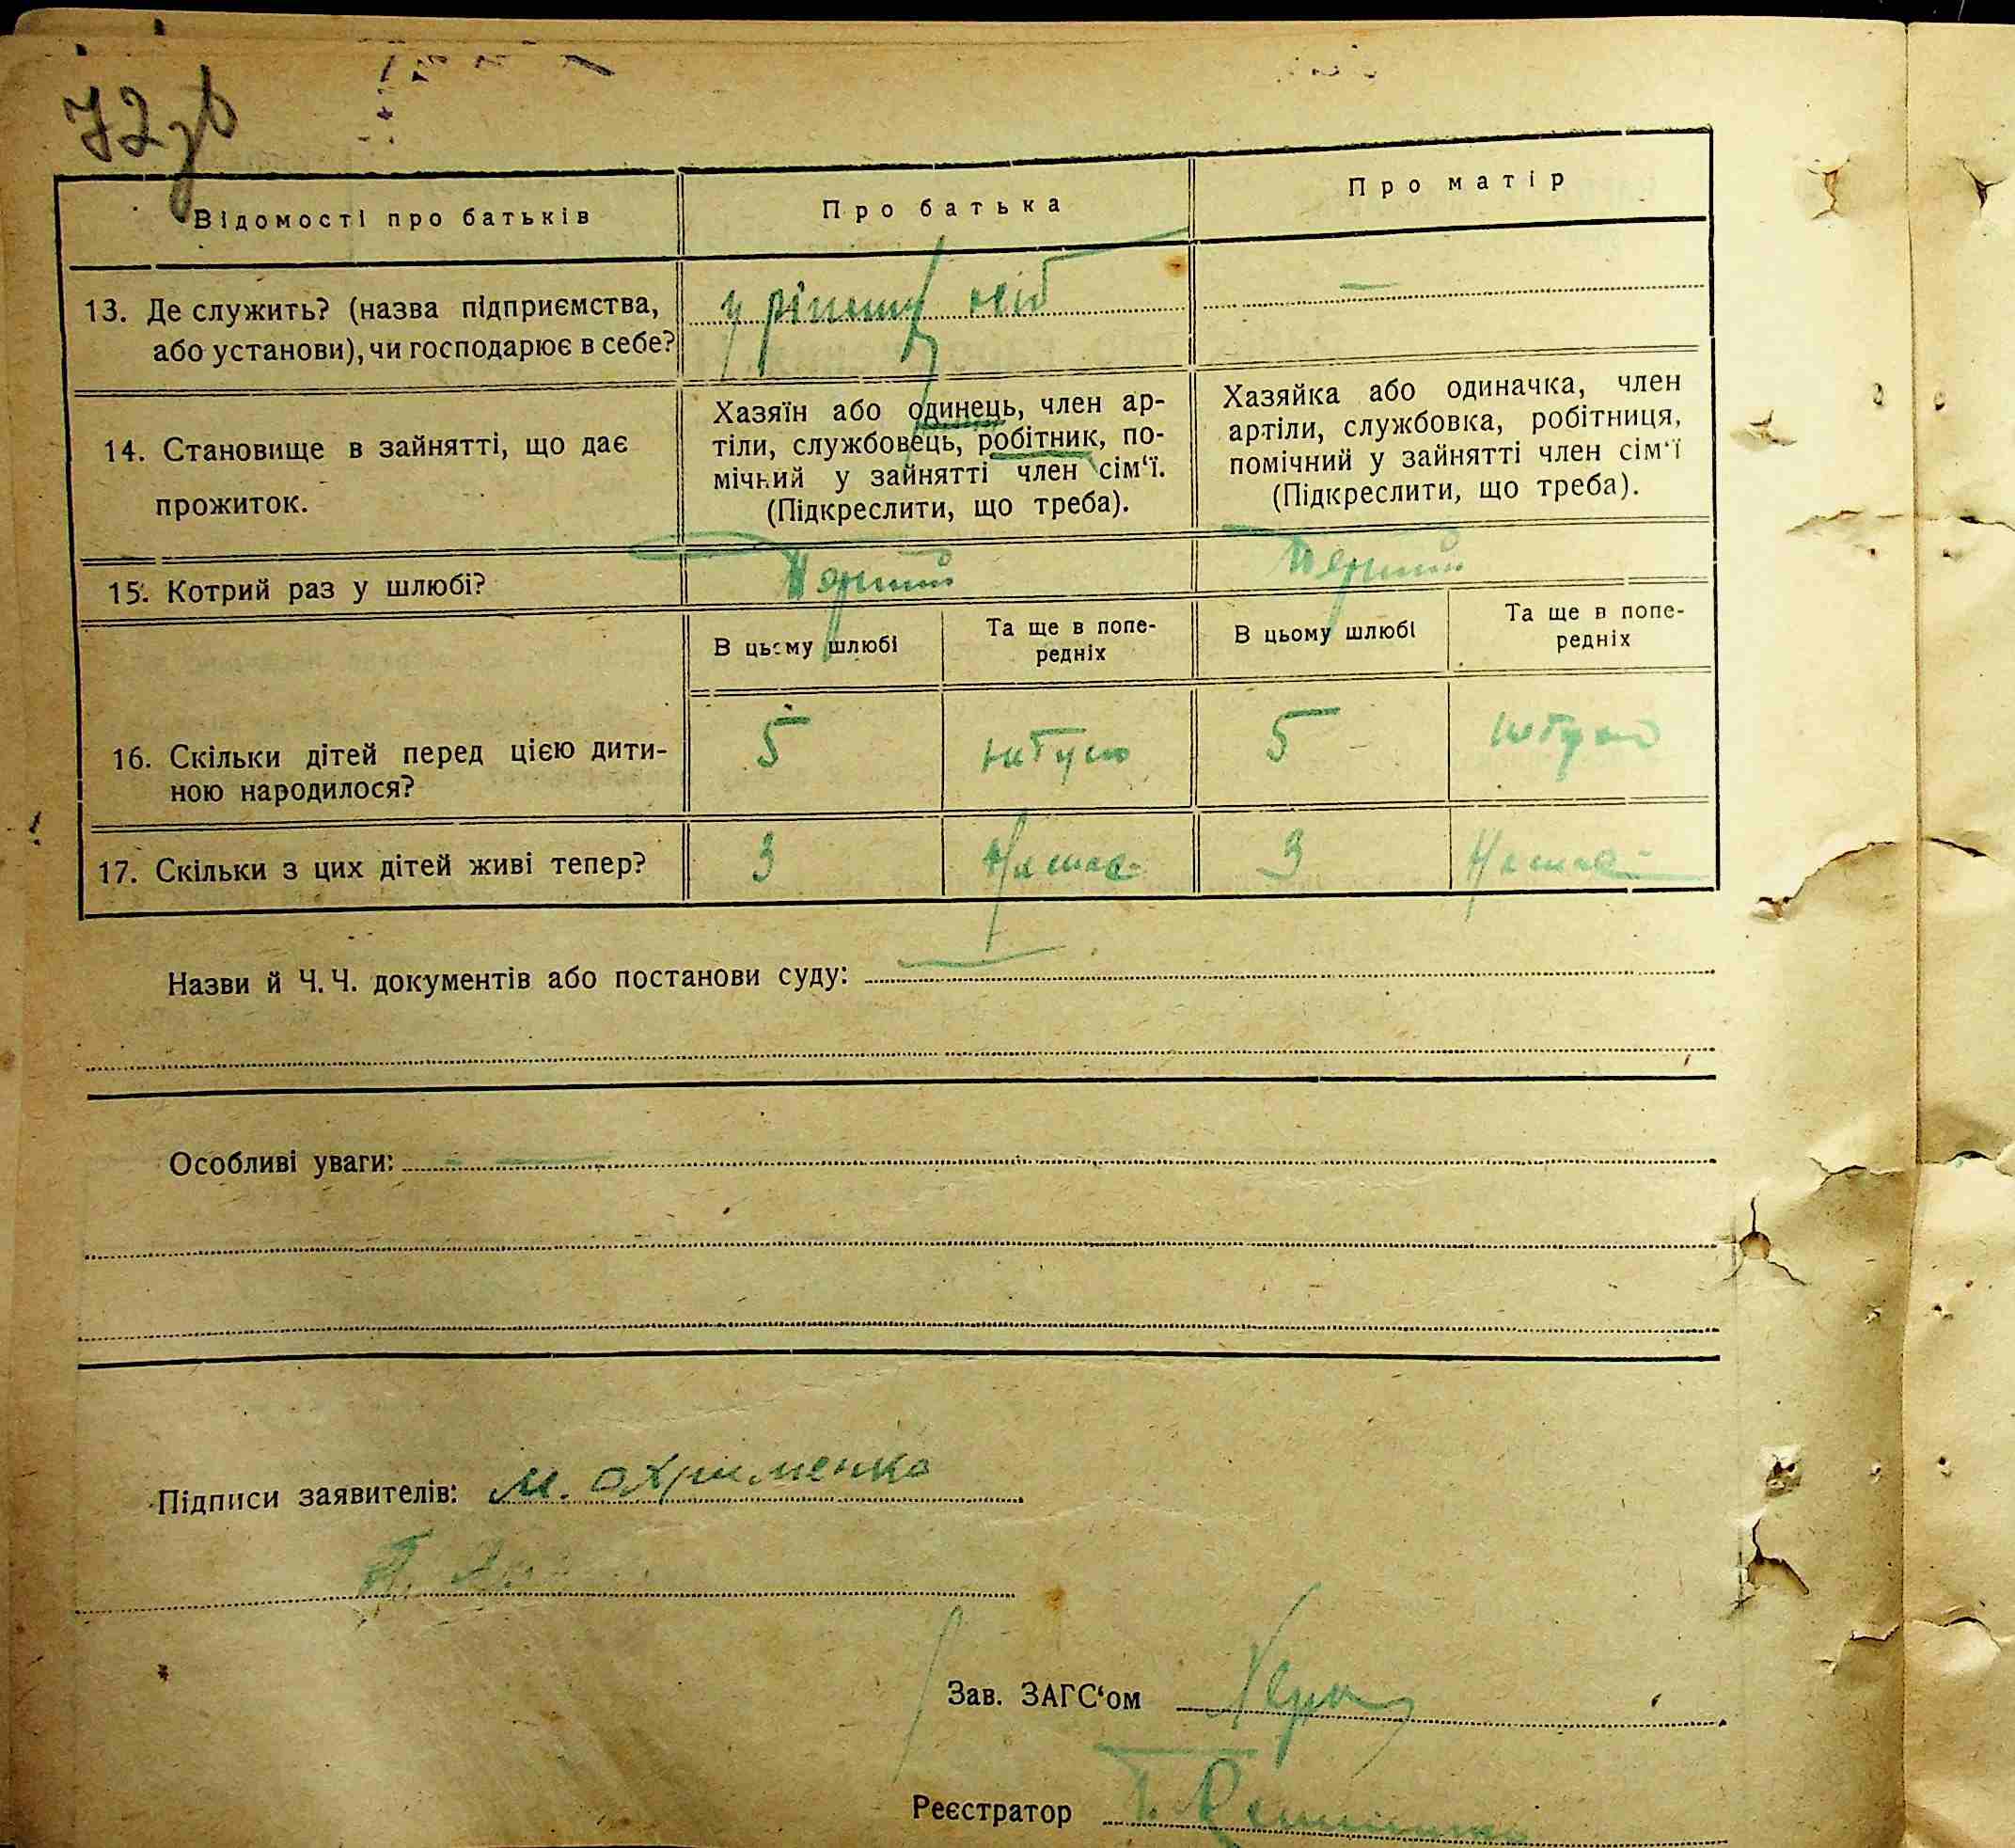 72зв
Відомості про батьків
Про батька
Про матір
13. Де служить? (назва підприємства,
або установи), чи господарює в себе?
у різних осіб
—
14. Становище в зайнятті, що дає
прожиток.
Хазяїн або одинець, член ар-
тіли, службовець, робітник, по-
мічний у зайнятті член сім‘ї.
(Підкреслити, що треба).
Хазяйка або одиначка, член
артіли, службовка, робітниця,
помічний у зайнятті член сім‘ї
(Підкреслити, що треба).
15. Котрий раз у шлюбі?
Перший
Перший
В цьому шлюбі
Та ще в попе-
редніх
В цьому шлюбі
Та ще в попе-
редніх
16. Скільки дітей перед цією дити-
ною народилося?
5
5
17. Скільки з цих дітей живі тепер?
3
3
Назви й Ч. Ч. документів або постанови суду:
Особливі уваги:
Підписи заявителів: М. Охрименко
Зав. ЗАГС‘ом
Реєстратор